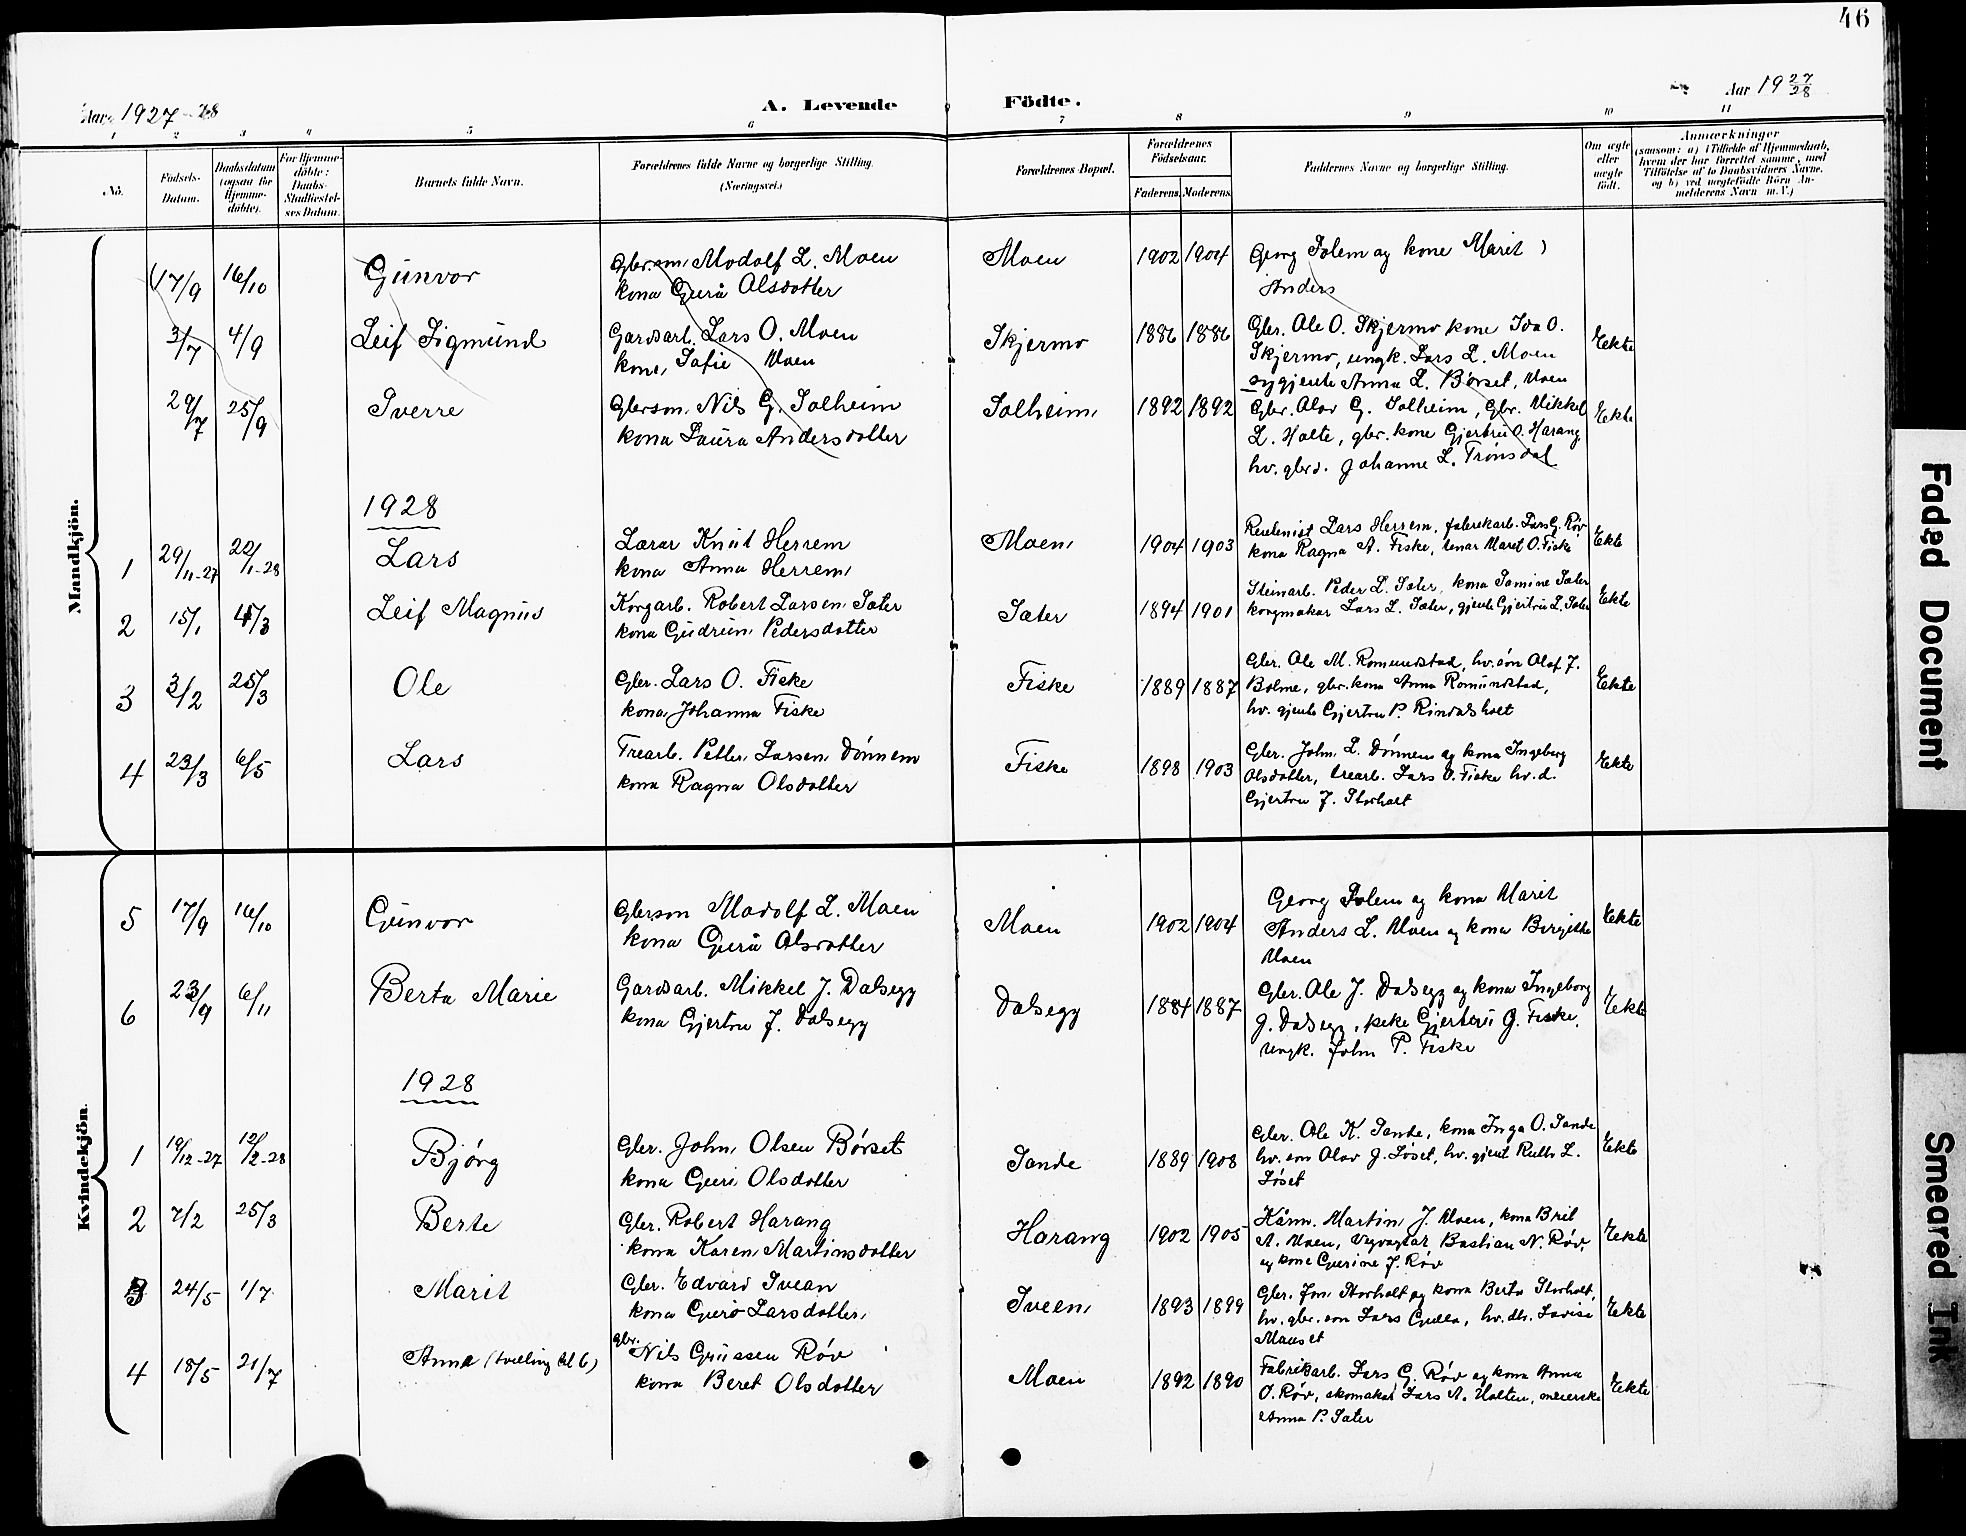 46
Aar 1927-28
A. Levende Födte.
Aar 19 27/28
1 2 3 4 5 6 7 8 9 10 11
No.
Födsels-Datum.
Daabsdatum (ogsaa for Hjemme-döbte).
For Hjemme-döbte: Daabs-Stadfæstel-ses Datum.
Barnets fulde Navn.
Forældrenes fulde Navne og borgerlige Stilling. (Næringsvei.)
Forældrenes Bopæl.
Forældrenes Födselsaar.
Faderens. Moderens.
Faddernes Navne og borgerlige Stilling.
Om ægte eller uægte födt.
Anmærkninger
(saasom: a) i Tilfælde af Hjemmedaab, hvem der har forrettet samme, med Tilföielse af to Daabsvidners Navne, og b) ved uægtefödte Börn An-melderens Navn m. V.)
Mandkjön.
17/9 16/10 Gunvor Gbr.søn Modolf L. Moen Moen 1902 1904 Georg Solem og kone Marit
kona Gurå Olsdotter Anders
3/7 4/9 Leif Sigmund Gardsarb. Lars O. Moen Skjermo 1886 1886 Gbr. Ole O. Skjermo kone Ida O. Ekte
kone, Sofie Moen Skjermo, ungk. Lars L. Moen
sygjente Anna L. Børset, Moen
29/7 25/9 Sverre Gbrson. Nils G. Solheim Solheim 1892 1892 Gbr. Olav G. Solheim, Gbr. Mikkel Ekte
kona Laura Andersdotter L. Holte, gbr. kone Gjertru O. Harang
hv. gbrd. Johanne L. Trønsdal
1928
1 29/11-27 22/1-28 Lars Lærar Knut Herrem Moen 1904 1903 Lars Herrem, fabrikarb. Lars G. Røv Ekte
kona Anna Herrem kona Ragna A. Fiske, tenar Maret O. Fiske
2 15/1 4/3 Leif Magnus Korgarb. Robert Larsen Sæter Sæter 1894 1901 Steinarb. Peder L. Sæter, kona Samine Sæter Ekte
kona Gudrun Pedersdotter korgmakar Lars L. Sæter, gjente Gjertru L. Sæter
3 3/2 25/3 Ole Gbr. Lars O. Fiske Fiske 1889 1887 Gbr. Ole M. Romundstad, hv. søn Olaf J. Ekte
kona, Johanna Fiske Bolme, gbr. kona Anna Romundstad,
hv. gjente Gjertru P. Rindalsholt
4 23/3 6/5 Lars Trearb. Petter Larsen Dønnem Fiske 1898 1903 Gbr. John L. Dønnem og kona Ingeborg Ekte
kona Ragna Olsdotter Olsdotter, trearb. Lars O. Fiske hv. d.
Gjertru J. Storholt
Kvindekjön.
5 17/9 16/10 Gunvor Gbrson Modolf L. Moen Moen 1902 1904 Georg Solem og kona Marit Ekte
kona Gurå Olsdotter Anders L. Moen og kona Birgitte
Moen
6 23/9 6/11 Berta Marie Gardsarb. Mikkel J. Dalsegg Dalsegg 1884 1887 Gbr. Ole J. Dalsegg og kona Ingeborg Ekte
kona Gjertru J. Dalsegg J. Dalsegg, pike Gjertru J. Fiske,
ungk. John P. Fiske
1928
1 19/12-27 12/2-28 Bjørg Gbr. John Olsen Børset Sande 1889 1908 Gbr. Ole K. Sande, kona Inga O. Sande Ekte
kona Guri Olsdotter hv. søn Olav J. Løset, hv. gjent Ruth L.
Løset
2 7/2 25/3 Berte Gbr. Robert Harang Harang 1902 1905 Martin J. Moen, kona Brit Ekte
kona Karen Martinsdotter A. Moen, Vegvagtar Bastian N. Røv,
og kone Gurine J. Røv
3 24/5 1/7 Marit Gbr. Edvard Svean Sveen 1893 1899 Gbr. Jon Storholt og kona Berta Storholt, Ekte
kona Guro Larsdotter hv. gbr. søn Lars Gulla, hv. dtr. Lovise
Mauset
4 18/5 21/7 Anna (tvilling til 6) gbr. Nils Gjursen Røv Moen 1892 1890 Fabrikarb. Lars G. Røv og kona Anna Ekte
kona Beret Olsdotter O. Røv, skomakar Lars A. Holten, meierske
Anna P. Sæter
Faded Document
Smeared Ink